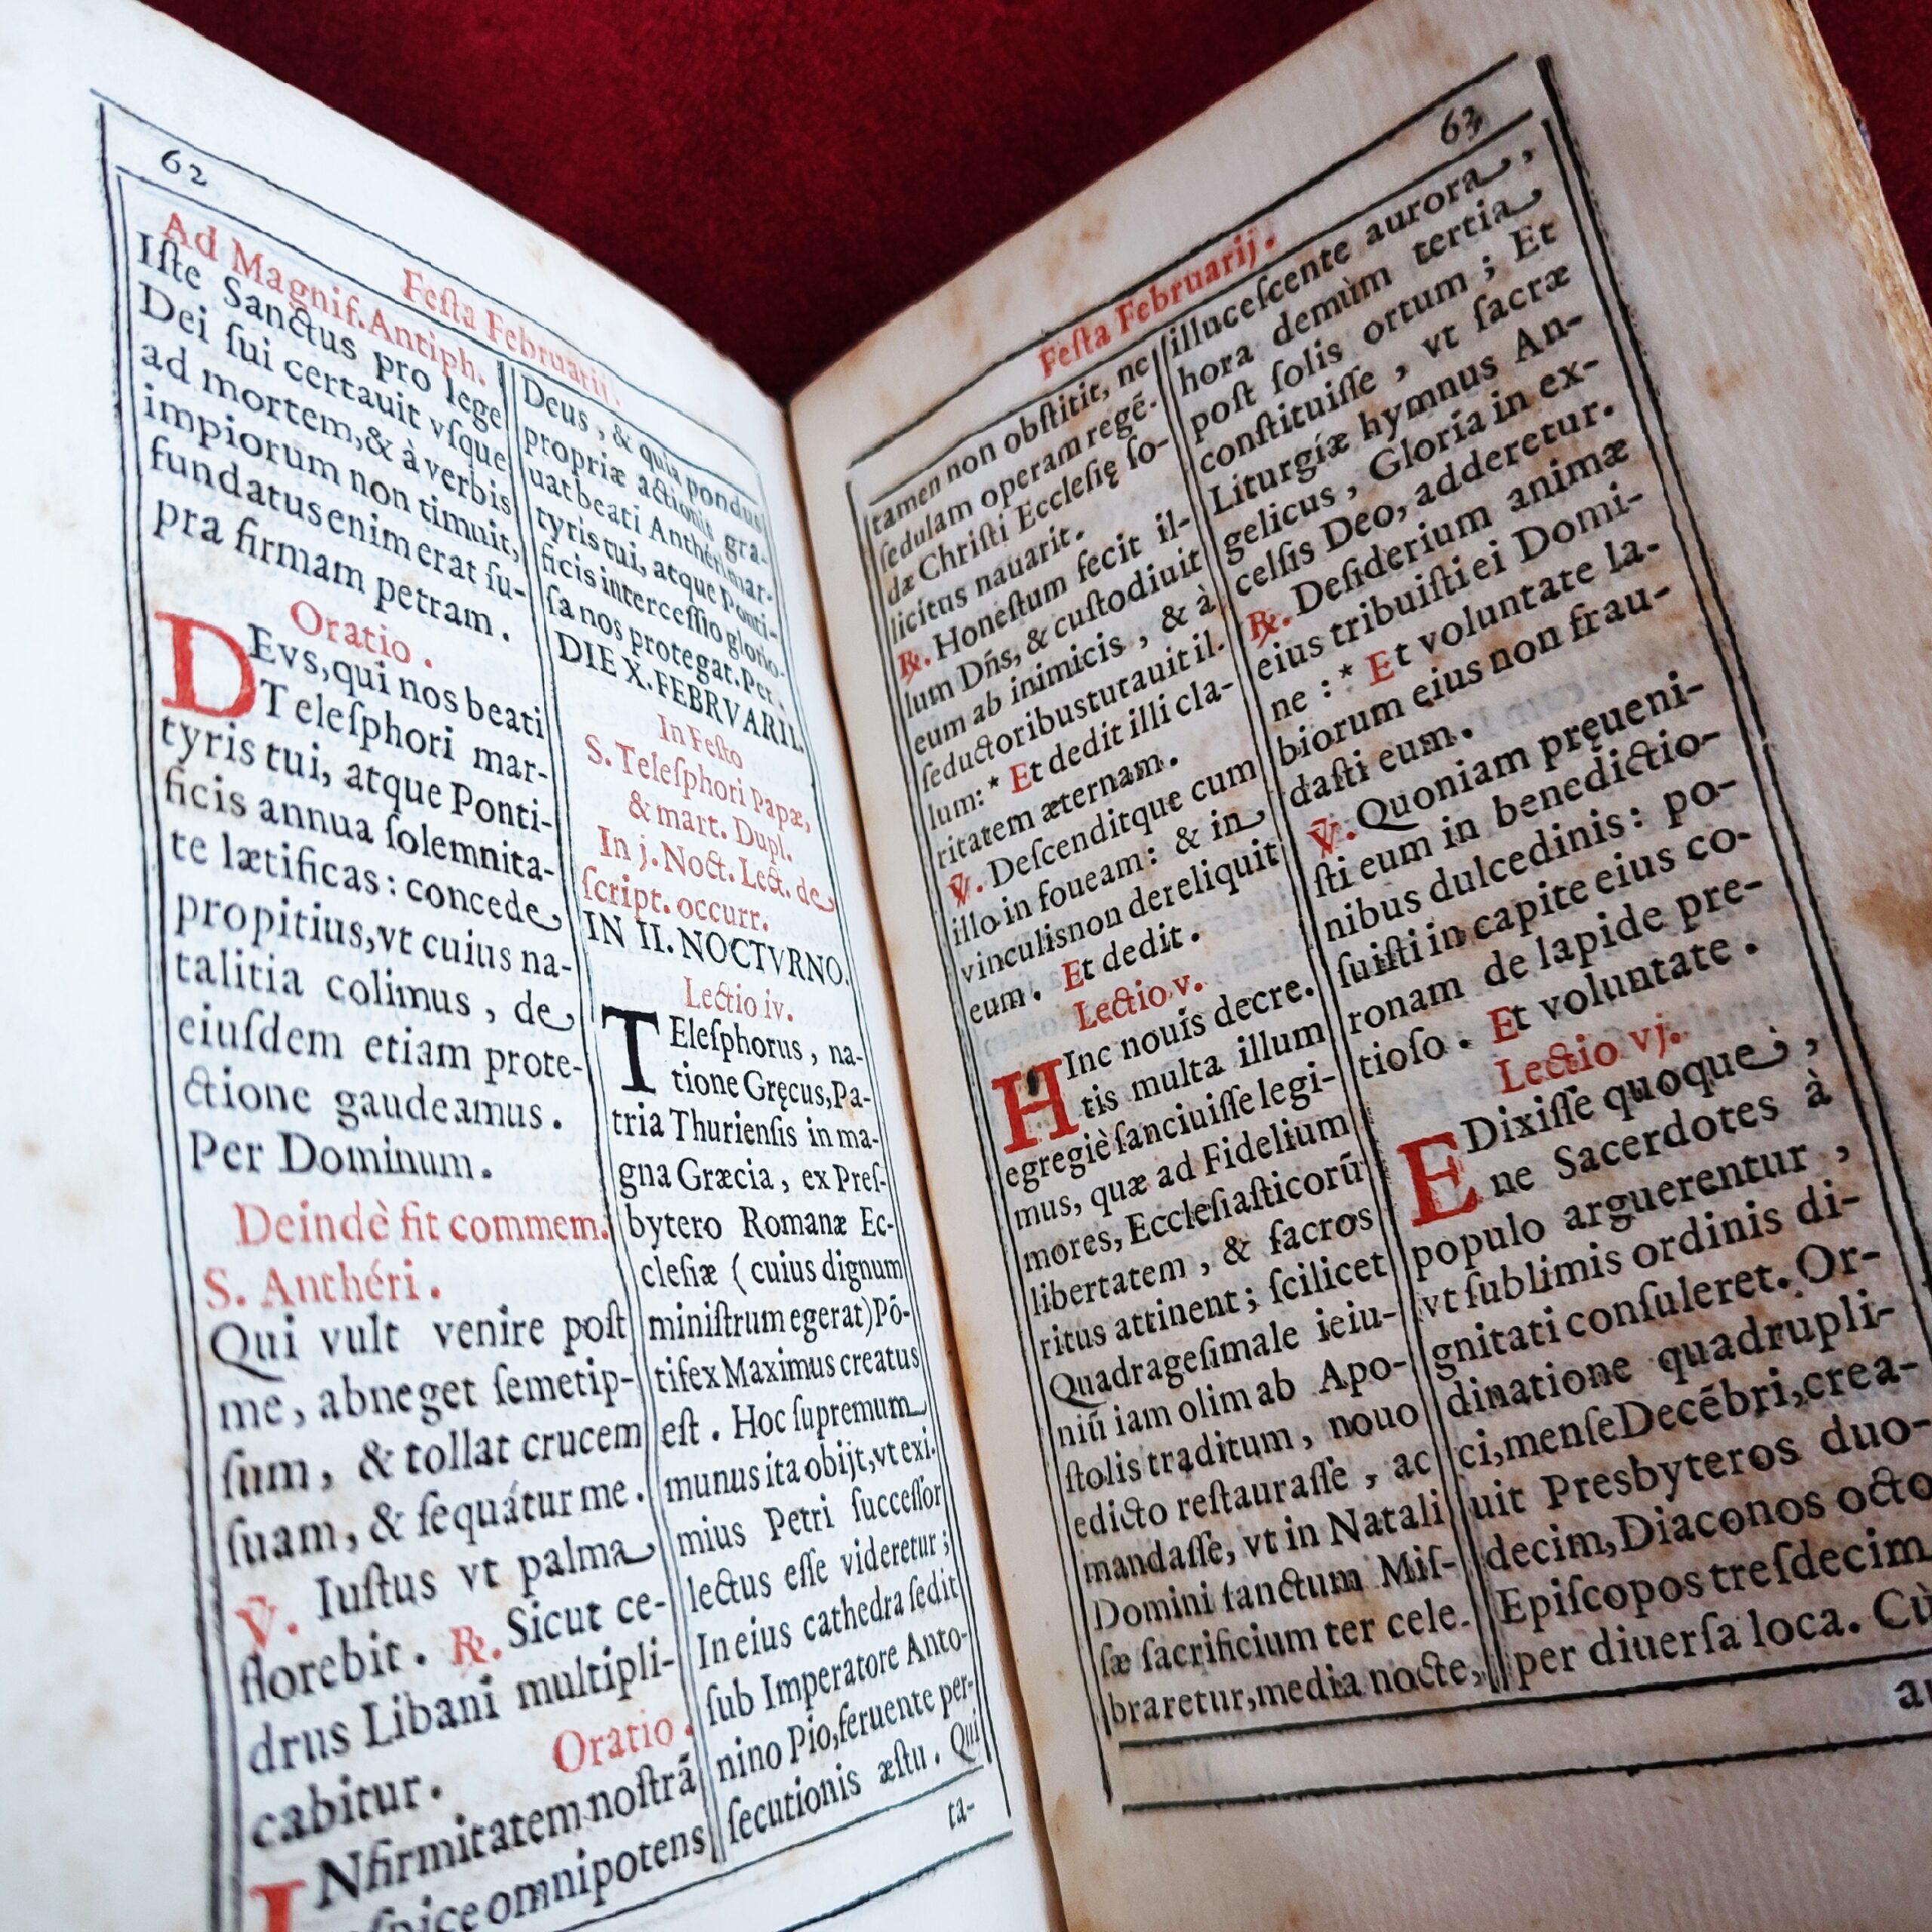 62
Festa Februarij.
Ad Magnif. Antiph.
Iſte Sanctus pro lege
Dei ſui certauit vſque
ad mortem, & à verbis
impiorum non timuit,
fundatus enim erat ſu-
pra firmam petram.
Oratio.
DEvs, qui nos beati
Teleſphori mar-
tyris tui, atque Ponti-
ficis annua ſolemnita-
te lætificas: concede
propitius, vt cuius na-
talitia colimus, de
eiuſdem etiam prote-
ctione gaudeamus.
Per Dominum.
Deindè fit commem.
S. Anthéri.
Qui vult venire poſt
me, abneget ſemetip-
ſum, & tollat crucem
ſuam, & ſequátur me.
℣. Iuſtus vt palma
florebit. ℟. Sicut ce-
drus Libani multipli-
cabitur.
Oratio.
INfirmitatem noſtrā
ſpice omnipotens
Deus, & quia pondus
propriæ actionis gra-
uat beati Anthéri mar-
tyris tui, atque Ponti-
ficis interceſſio glorio-
ſa nos protegat. Per.
DIE X. FEBRVARII.
In Feſto
S. Teleſphori Papæ,
& mart. Dupl.
In j. Noct. Lect. de
ſcript. occurr.
IN II. NOCTVRNO.
Lectio iv.
TEleſphorus, na-
tione Gręcus, Pa-
tria Thurienſis in ma-
gna Græcia, ex Preſ-
bytero Romanæ Ec-
cleſiæ (cuius dignum
miniſtrum egerat) Pō-
tifex Maximus creatus
eſt. Hoc ſupremum
munus ita obijt, vt exi-
mius Petri ſucceſſor
lectus eſſe videretur;
In eius cathedra ſedit
ſub Imperatore Anto-
nino Pio, feruente per-
ſecutionis æſtu. Qui
ta-
63
Feſta Februarij.
tamen non obſtitit, ne
ſedulam operam regē-
dæ Chriſti Eccleſię ſo-
licitus nauarit.
℟. Honeſtum fecit il-
lum Dn̄s, & cuſtodiuit
eum ab inimicis, & à
ſeductoribus tutauit il-
lum: * Et dedit illi cla-
ritatem æternam.
℣. Deſcenditque cum
illo in foueam: & in
vinculis non dereliquit
eum. Et dedit.
Lectio v.
HInc nouis decre-
tis multa illum
egregiè ſanciuiſſe legi-
mus, quæ ad Fidelium
mores, Eccleſiaſticorū
libertatem, & ſacros
ritus attinent; ſcilicet
Quadrageſimale ieiu-
niū iam olim ab Apo-
ſtolis traditum, nouo
edicto reſtauraſſe, ac
mandaſſe, vt in Natali
Domini ſanctum Miſ-
ſæ ſacrificium ter cele-
braretur, media nocte,
illuceſcente aurora,
hora demùm tertia
poſt ſolis ortum; Et
conſtituiſſe, vt ſacræ
Liturgiæ hymnus An-
gelicus, Gloria in ex-
celſis Deo, adderetur.
℟. Deſiderium animæ
eius tribuiſti ei Domi-
ne: * Et voluntate la-
biorum eius non frau-
daſti eum.
℣. Quoniam pręueni-
ſti eum in benedictio-
nibus dulcedinis: po-
ſuiſti in capite eius co-
ronam de lapide pre-
tioſo. Et voluntate.
Lectio vj.
EDixiſſe quoque;,
ne Sacerdotes à
populo arguerentur,
vt ſublimis ordinis di-
gnitati conſuleret. Or-
dinatione quadrupli-
ci, menſe Decēbri, crea-
uit Presbyteros duo-
decim, Diaconos octo
Epiſcopos treſdecim
per diuerſa loca. Cù